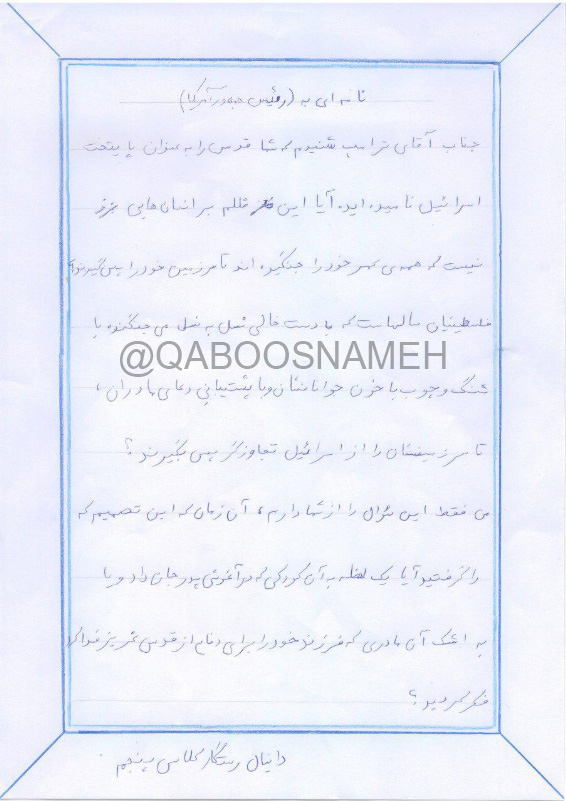 نامه ای به (رئیس جمهور آمریکا)
جناب آقای ترامپ شنیدم که شما قدس را به عنوان پایتخت
اسرائیل نامیده اید. آیا این ظلم بر انسان هایی
نیست که همه ی عمر خود را جنگیده اند تا سرزمین خود را پس گیرند؟
فلسطینیان سالهاست که با دست خالی نسل به نسل می جنگند با
@QABOOSNAMEH
سنگ و چوب با خون جوانانشان و با پشتیبانی دعای مادران ،
تا سرزمینشان را از اسرائیل تجاوزگر پس بگیرند ؟
من فقط این سؤال را از شما دارم ، آن زمان که این تصمیم
را گرفتید آیا یک لحظه به آن کودکی که در آغوش پدر جان داد و یا
به اشک آن مادری که فرزند خود را برای دفاع از قدس عزیز فدا کرد
فکر کردید ؟
دانیال رستگار کلاس پنجم